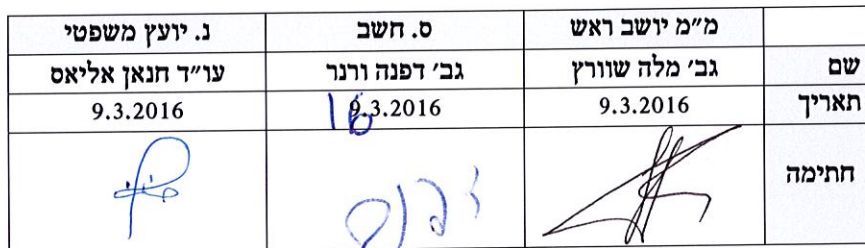 מ״מ יושב ראש	ס. חשב	נ. יועץ משפטי
שם	גב׳ מלה שוורץ	גב׳ דפנה ורנר	עו״ד חנאן אליאס
תאריך	9.3.2016	9.3.2016	9.3.2016
16
חתימה